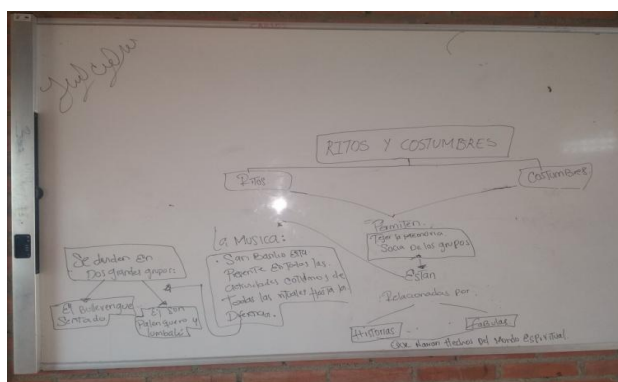 RITOS Y COSTUMBRES
Ritos
Costumbres
Permiten.
Tejer la
Social De los grupos
Están
Relacionadas por.
Historias
Fabulas
Que Narran Hechos Del Mundo Espiritual
La Musica:
San Basilio Esta
Presente en Todas las
Actividades cotidianas de
Todas las
Se dividen en
Dos grandes grupos
El Bullerengue
Sentado
El Son
Palenquero y